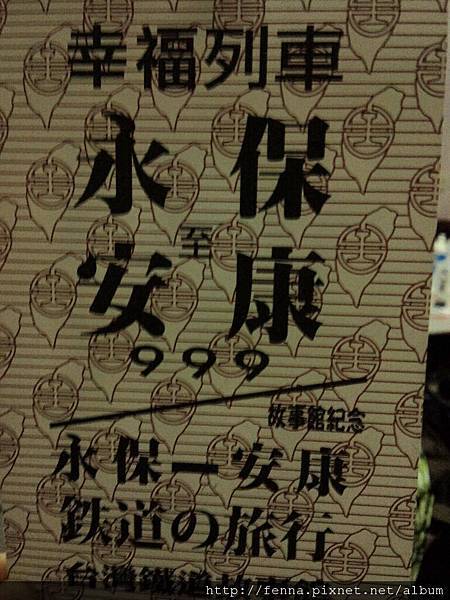 幸福列車
永保
至
安康
999
故事館紀念
永保－安康
鉄道の旅行
http://fenna.pixnet.net/album